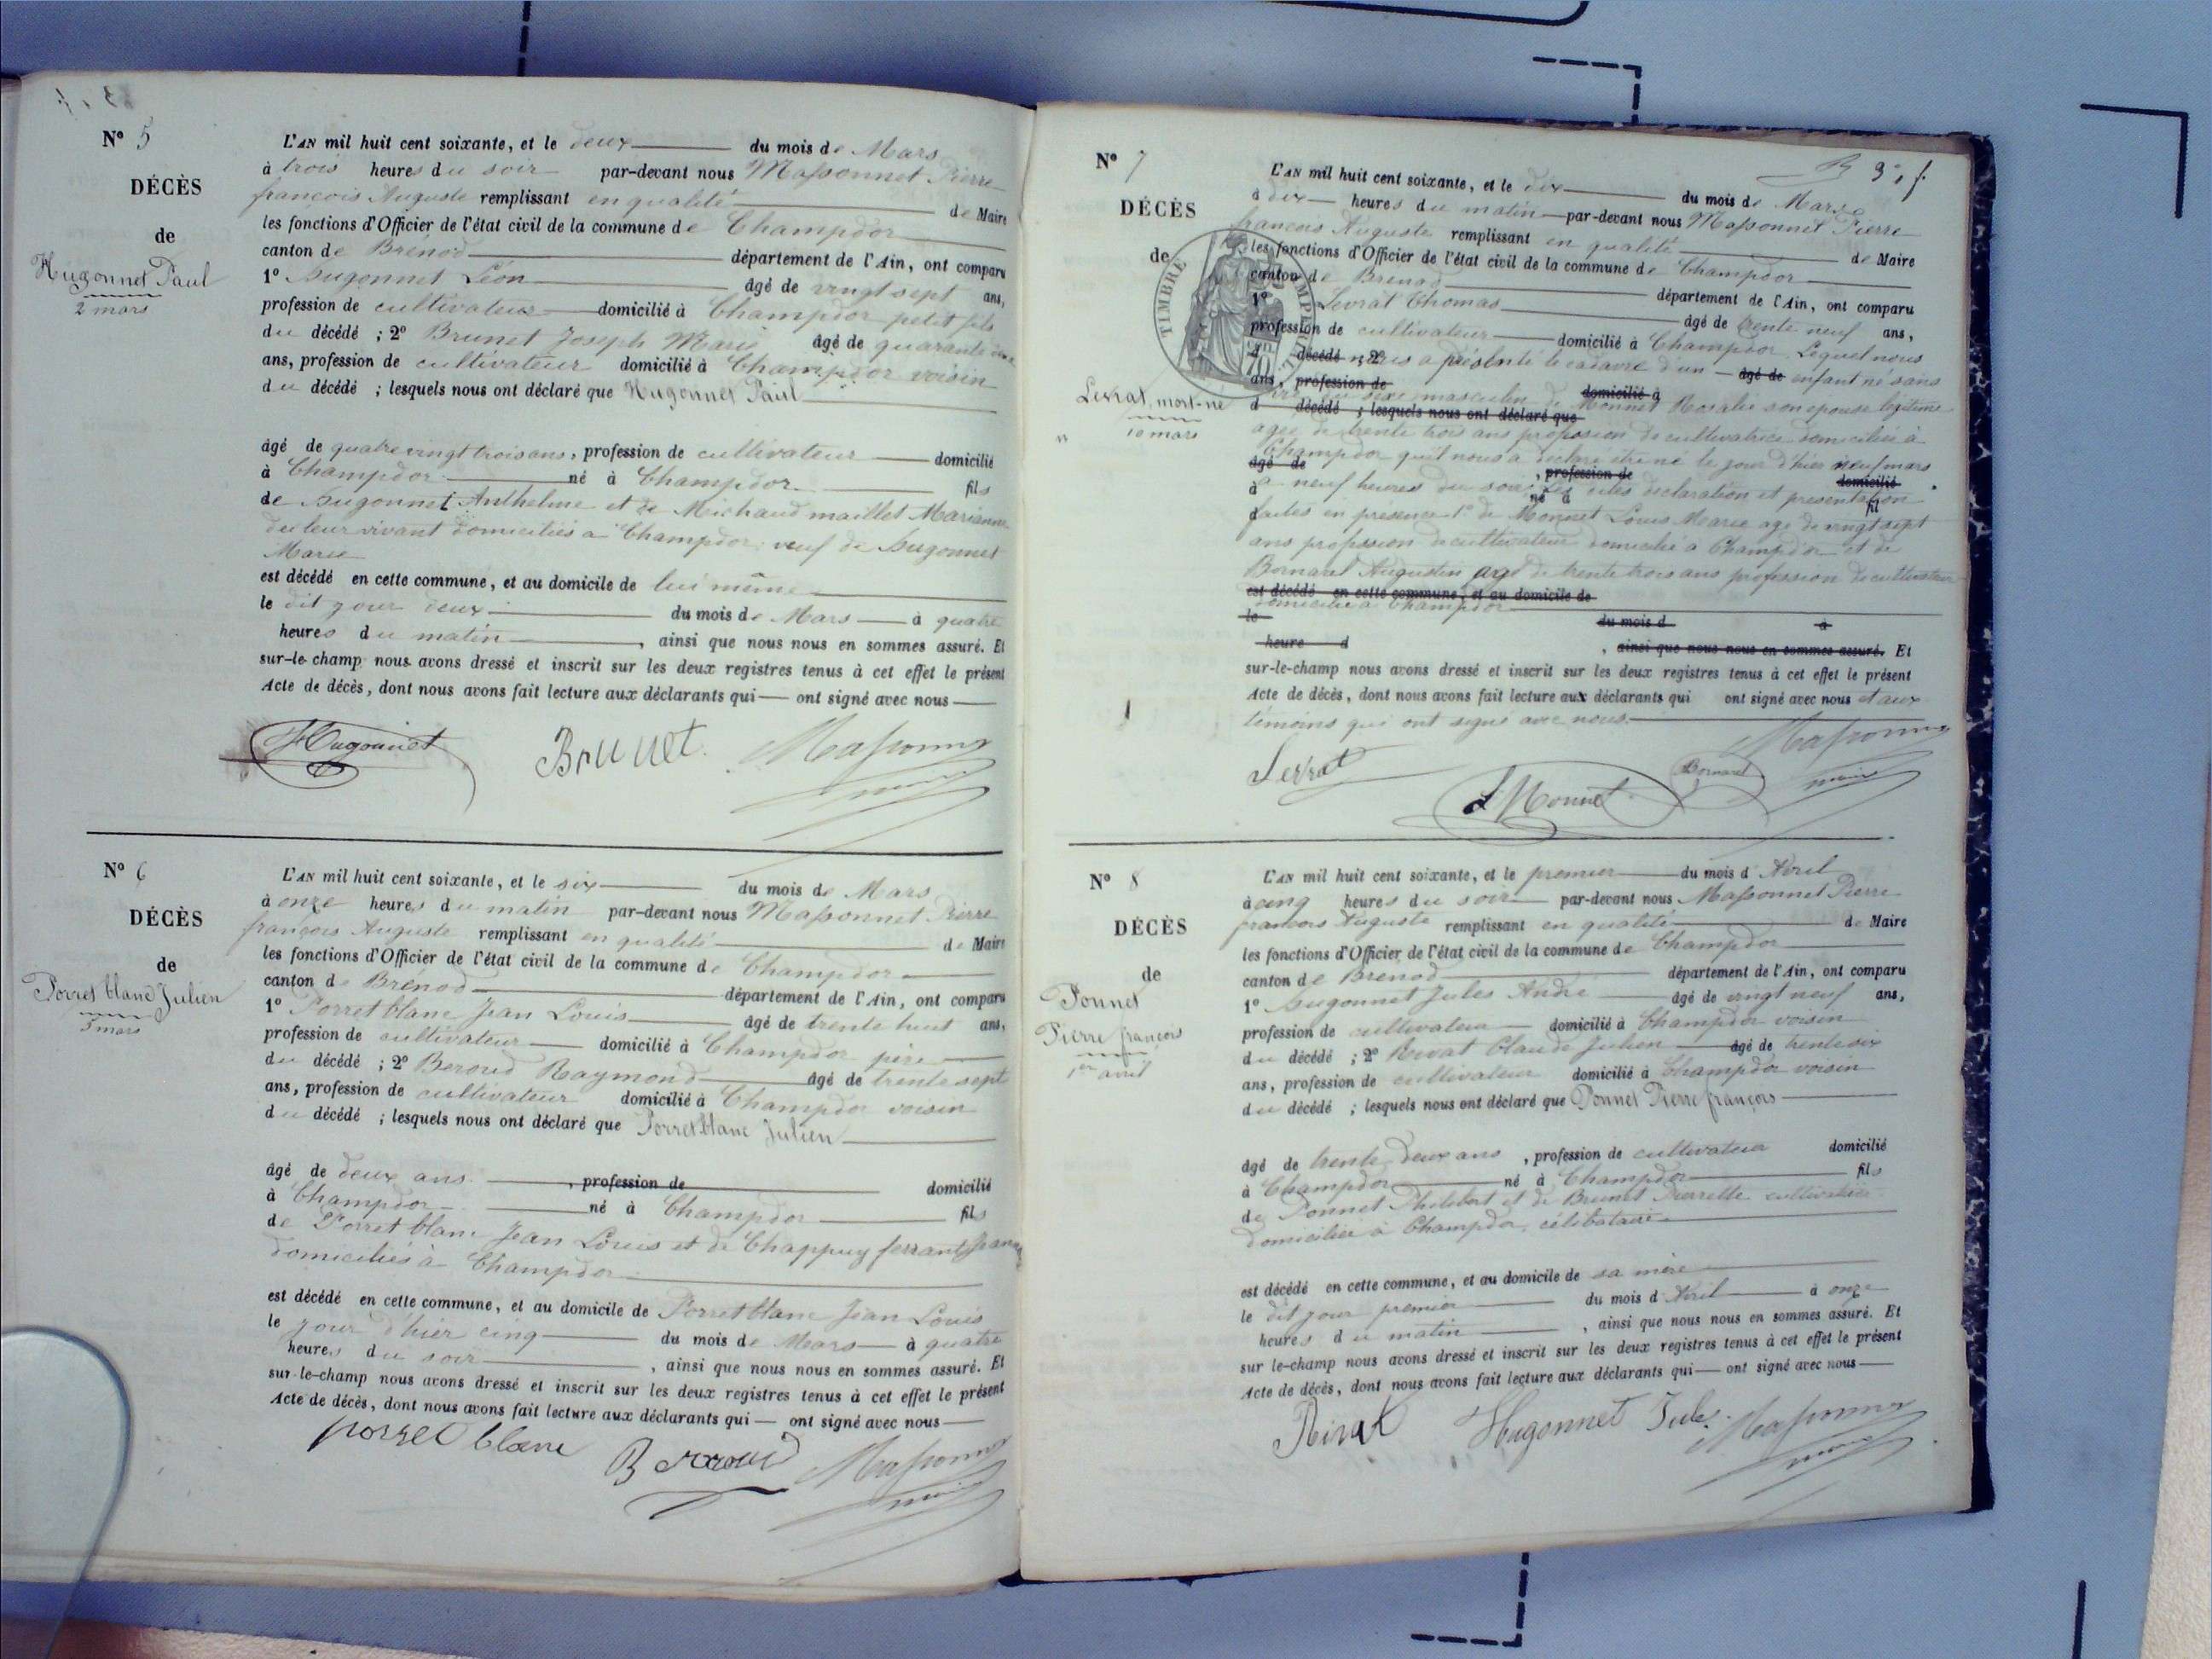 N° 5
DÉCÈS
de
Hugonnet Paul
2 mars
L'AN mil huit cent soixante, et le deux du mois de Mars
à trois heures du soir par-devant nous Massonnet Pierre
françois Auguste remplissant en qualité de Maire
les fonctions d'Officier de l'état civil de la commune de Champdor
canton de Brénod département de l'Ain, ont comparu
1° Hugonnet Léon âgé de vingt sept ans,
profession de cultivateur domicilié à Champdor petit fils
du décédé ; 2° Brunet Joseph Marie âgé de quarante
ans, profession de cultivateur domicilié à Champdor voisin
du décédé ; lesquels nous ont déclaré que Hugonnet Paul
âgé de quatre vingt trois ans, profession de cultivateur domicilié
à Champdor né à Champdor fils
de Hugonnet Anthelme et de Michaud maillet Marianne
de leur vivant domiciliés à Champdor, veuf de Hugonnet
Marie
est décédé en cette commune, et au domicile de lui même
le dit jour deux du mois de Mars à quatre
heures du matin, ainsi que nous nous en sommes assuré. Et
sur-le-champ nous avons dressé et inscrit sur les deux registres tenus à cet effet le présent
Acte de décès, dont nous avons fait lecture aux déclarants qui ont signé avec nous
Hugonnet Brunet. Massonnet
maire
N° 6
DÉCÈS
de
Porret blanc Julien
5 mars
L'AN mil huit cent soixante, et le six du mois de Mars
à onze heures du matin par-devant nous Massonnet Pierre
françois Auguste remplissant en qualité de Maire
les fonctions d'Officier de l'état civil de la commune de Champdor
canton de Brénod département de l'Ain, ont comparu
1° Porret blanc Jean Louis âgé de trente huit ans,
profession de cultivateur domicilié à Champdor père
du décédé ; 2° Beroud Raymond âgé de trente sept
ans, profession de cultivateur domicilié à Champdor voisin
du décédé ; lesquels nous ont déclaré que Porret blanc Julien
âgé de deux ans, profession de domicilié
à Champdor né à Champdor fils
de Porret blanc Jean Louis et de Chappuy ferrant
domiciliés à Champdor
est décédé en cette commune, et au domicile de Porret blanc Jean Louis
le jour d'hier cinq du mois de Mars à quatre
heures du soir, ainsi que nous nous en sommes assuré. Et
sur-le-champ nous avons dressé et inscrit sur les deux registres tenus à cet effet le présent
Acte de décès, dont nous avons fait lecture aux déclarants qui ont signé avec nous
porret blanc Massonnet
maire
N° 7
DÉCÈS
de
Levrat, mort-né
10 mars
TIMBRE
L'AN mil huit cent soixante, et le dix du mois de Mars
à dix heures du matin par-devant nous Massonnet Pierre
francois Auguste remplissant en qualité de Maire
les fonctions d'Officier de l'état civil de la commune de Champdor
canton de Brenod département de l'Ain, ont comparu
1° Levrat Thomas âgé de trente neuf ans,
profession de cultivateur domicilié à Champdor Lequel nous
d décédé ; 2° nous a présenté le cadavre d'un âgé de enfant né sans
ans, profession de domicilié à
vie du sexe masculin de Monnet Rosalie son épouse légitime
d décédé ; lesquels nous ont déclaré que
agée de trente trois ans profession de cultivatrice domiciliée à
Champdor qu'il nous a déclaré être né le jour d'hier neuf mars
âgé de, profession de domicilié
à neuf heures du soir. Les dites déclaration et présentation
à né à fil
faites en présence 1° de Monnet Louis Marie agé de vingt sept
ans profession de cultivateur domicilié à Champdor et de
Bornarel Augustin agé de trente trois ans profession de cultivateur
est décédé en cette commune, et au domicile de
domicilié à Champdor
le du mois d à
heure d, ainsi que nous nous en sommes assuré. Et
sur-le-champ nous avons dressé et inscrit sur les deux registres tenus à cet effet le présent
Acte de décès, dont nous avons fait lecture aux déclarants qui ont signé avec nous et aux
témoins qui ont signé avec nous.
Levrat L Monnet Bornarel Massonnet
maire
N° 8
DÉCÈS
de
Ponnet
Pierre françois
1er avril
L'AN mil huit cent soixante, et le premier du mois d'Avril
à cinq heures du soir par-devant nous Massonnet Pierre
francois Auguste remplissant en qualité de Maire
les fonctions d'Officier de l'état civil de la commune de Champdor
canton de Brénod département de l'Ain, ont comparu
1° Hugonnet Jules André âgé de vingt neuf ans,
profession de cultivateur domicilié à Champdor voisin
du décédé ; 2° Rivat Claude Julien âgé de trente six
ans, profession de cultivateur domicilié à Champdor voisin
du décédé ; lesquels nous ont déclaré que Ponnet Pierre françois
âgé de trente deux ans, profession de cultivateur domicilié
à Champdor né à Champdor fils
de Ponnet Philibert et de Brunet Pierrette cultivatrice
domiciliée à Champdor, célibataire
est décédé en cette commune, et au domicile de sa mère
le dit jour premier du mois d'Avril à onze
heures du matin, ainsi que nous nous en sommes assuré. Et
sur le-champ nous avons dressé et inscrit sur les deux registres tenus à cet effet le présent
Acte de décès, dont nous avons fait lecture aux déclarants qui ont signé avec nous
Rivat Hugonnet Jules Massonnet
maire